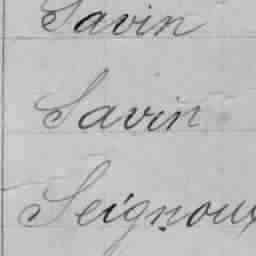 Savin
Savin
Seignoux